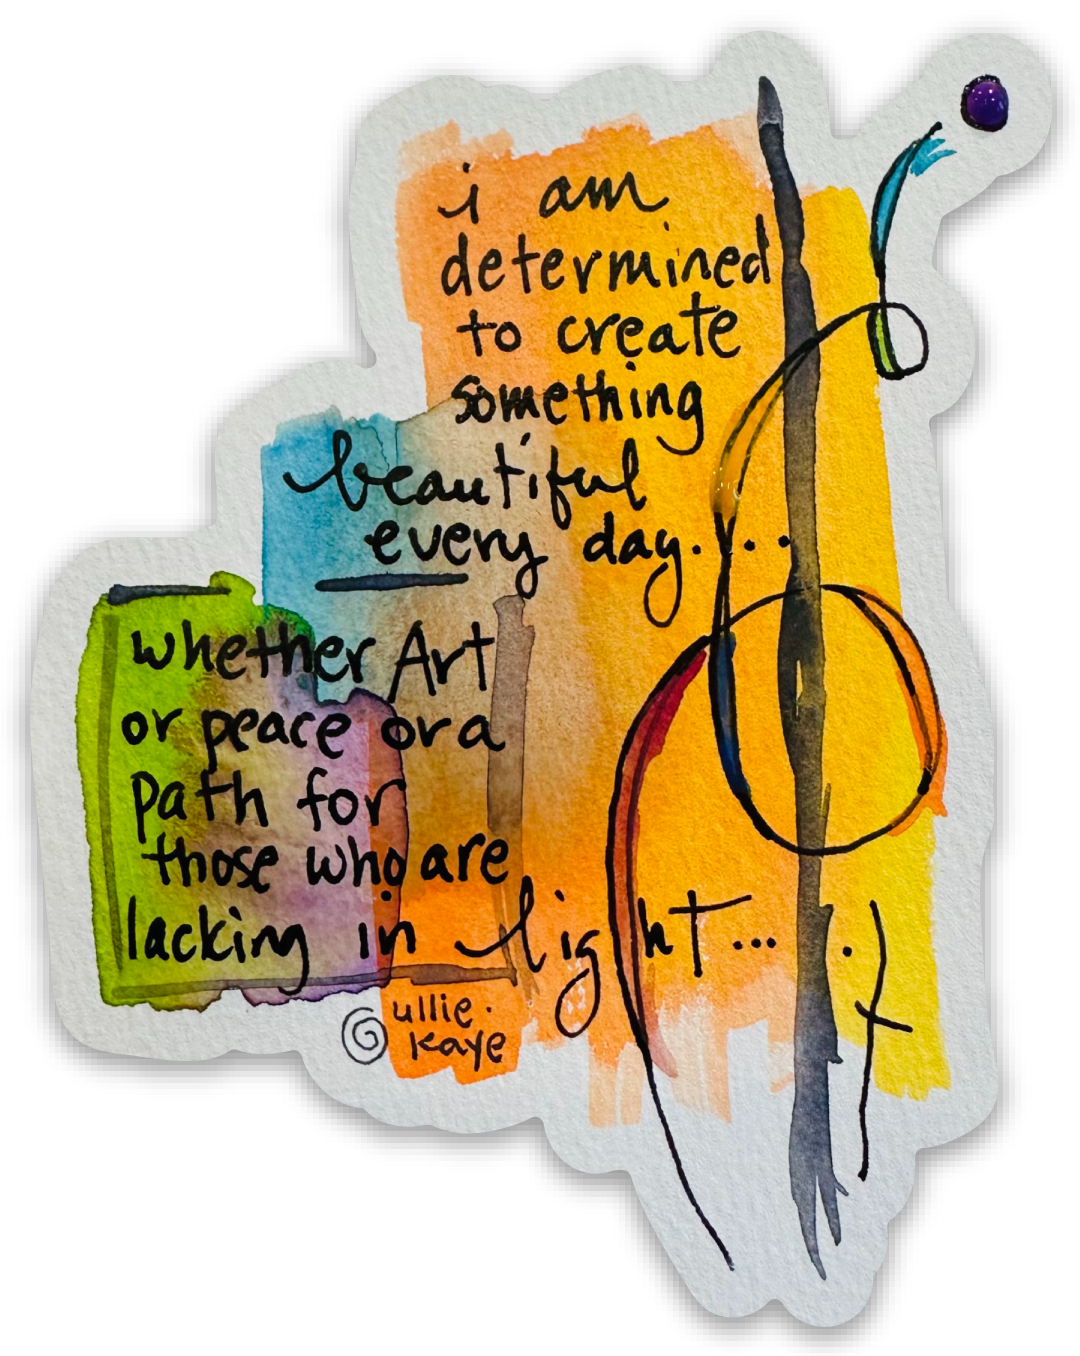 i am
determined
to create
something
beautiful
every day....
whether Art
or peace or a
path for
those who are
lacking in light...
ullie.
kaye